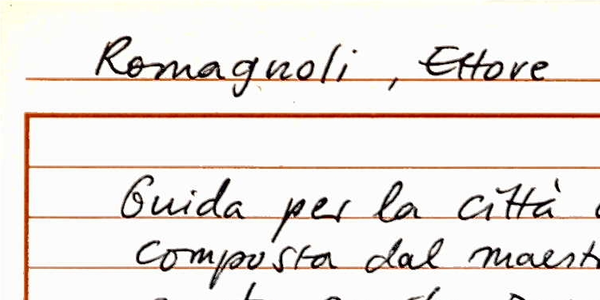 Romagnoli, Ettore
Guida per la città
composta dal